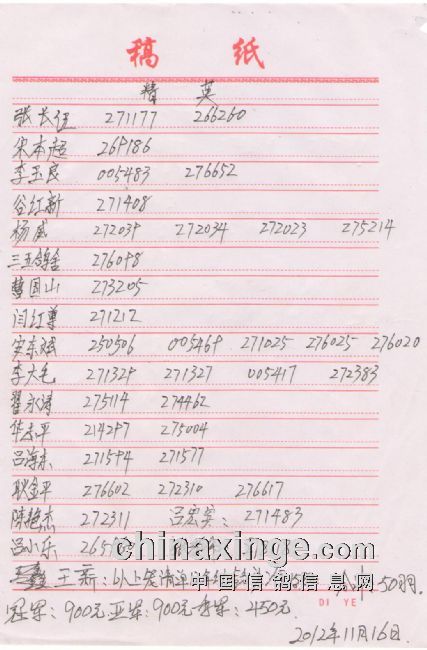 稿 纸
精 英
张长伍 271177 266260
宋本超 269186
李玉良 005483 276652
谷红新 271408
杨威 272039 272034 272023 275214
三五鸽舍 276098
国山 273205
闫红尊 271212
宋东斌 250506 005469 271025 276025 276020
李大毛 271329 271327 005417 272383
翟永涛 275114 274462
华志平 214297 275004
吕海杰 271594 271577
耿金平 276602 272310 276617
陈艳杰 272311 吕宏奕：271483
吕小乐 265
王新：以上 清单 50羽.
冠军：900元 亚军：900元 季军：450元.
DI YE
2012年11月16日.
chinaxinge.com
中国信鸽信息网